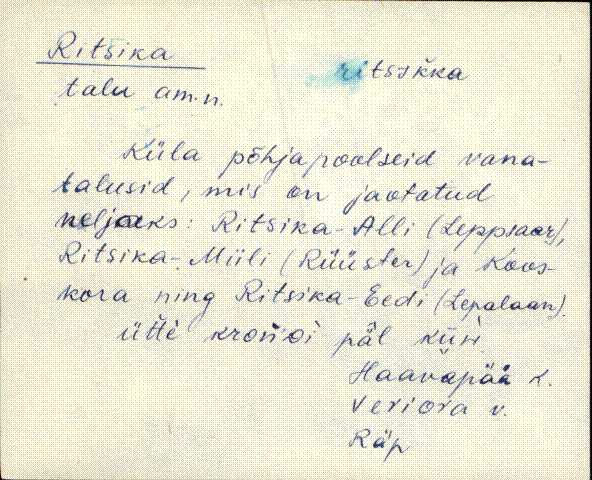 Ritsika
ritsikka
talu am.n.
Küla põhjapoolseid vana-
talusid, mis on jaotatud
neljaks: Ritsika-Alli (Leppsaar),
Ritsika-Miili (Rüüster) ja Koos-
kora ning Ritsika-Eedi (Lepalaan).
ütte krońńi päl küü
Haavapää k.
Veriora v.
Räp